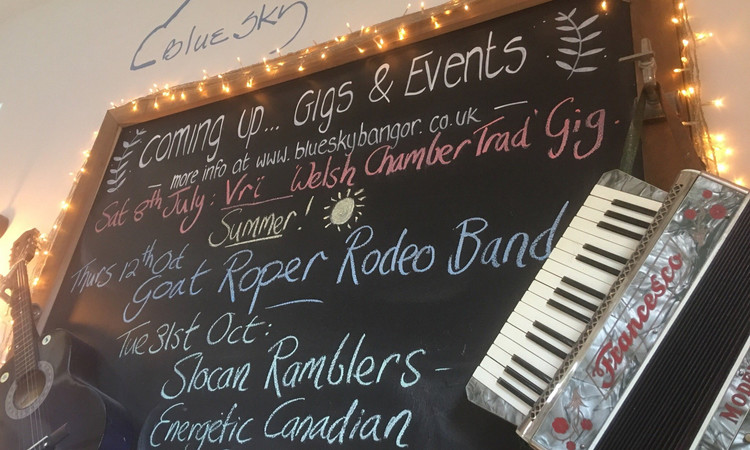 blue sky
coming up... Gigs & Events
— more info at www.blueskybangor.co.uk —
Sat 8th July: Vrï 'Welsh Chamber Trad' Gig.
Summer!
Thurs 12th Oct
Goat Roper Rodeo Band
Tue 31st Oct:
Slocan Ramblers –
Energetic Canadian
Francesco